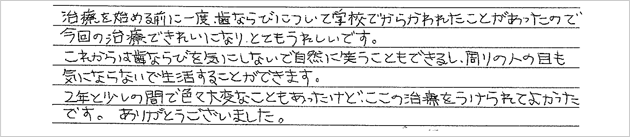 治療を始める前に一度、歯ならびについて学校でからかわれたことがあったので
今回の治療できれいになり、とてもうれしいです。
これからは歯ならびを気にしないで自然に笑うこともできるし、周りの人の目も
気にならないで生活することができます。
2年と少しの間で色々大変なこともあったけど、ここの治療をうけられてよかった
です。 ありがとうございました。